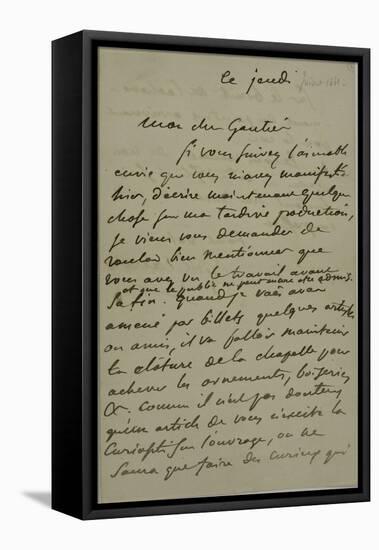 ce jeudi
Mon cher Gautier
Si vous suivez l'aimable
envie que vous m'avez manifestée
hier, d'écrire maintenant quelque
chose sur ma tardive production,
je viens vous demander de
vouloir bien mentionner que
vous avez vu le travail avant
sa fin. et que le public ne peut encore être admis.
Quand je vais avoir
amené par billets quelques artistes
ou amis, il va falloir maintenir
la clôture de la chapelle pour
achever les ornements, boiseries
&. Comme il n'est pas douteux
qu'un article de vous n'excite la
curiosité sur l'ouvrage, on ne
saura que faire des curieux qui